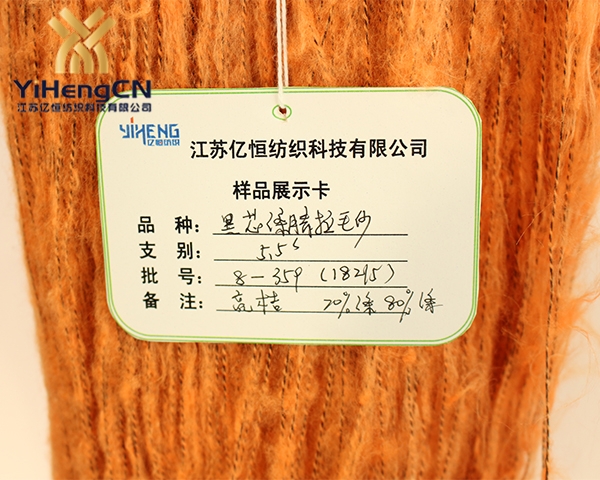 YiHengCN
江苏亿恒纺织科技有限公司
YIHENG
亿恒纺织
江苏亿恒纺织科技有限公司
样品展示卡
品 种: 黑芯涤腈拉毛纱
支 别: 5.5s
批 号: 8-359
备 注: 桔 涤 80%